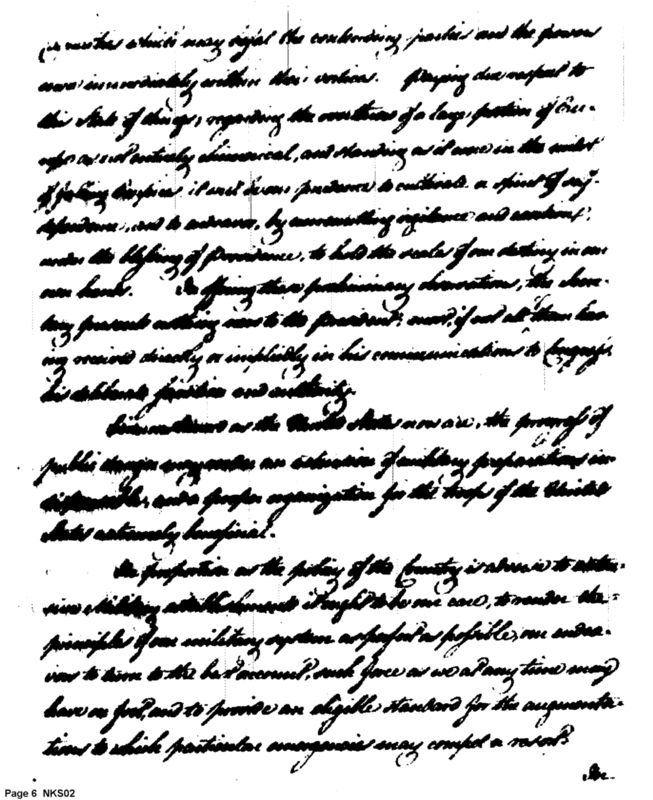 which may befal the contending parties and the powers
immediately within their vortex. Paying due respect to
this State of things, regarding the overthrow of a large portion of Eu-
rope as not entirely chimerical, and standing as it were in the midst
of falling Empires it will be our prudence to cultivate a spirit of self-
dependence, and to endeavor, by unremitting vigilance and exertions,
under the blessing of Providence, to hold the scales of our destiny in our
own hands. In offering these preliminary observations, the Secre-
tary presents nothing new to the President; most, if not all them hav-
ing received directly or impliedly in his communications to Congress,
his deliberate sanction and authority.
Circumstanced as the United States now are, the progress of
public danger may render an extension of military preparations in-
dispensable, and a proper organization for the troops of the United
States extremely beneficial.
In proportion as the policy of the Country is adverse to exten-
sive Military establishments it ought to be our care, to render the
principles of our military system as perfect as possible, our endea-
vours to turn to the best account, such force as we at any time may
have on foot, and to provide an eligible standard for the augmenta-
tions to which particular emergencies may compel a resort.
In
Page 6 NKS02